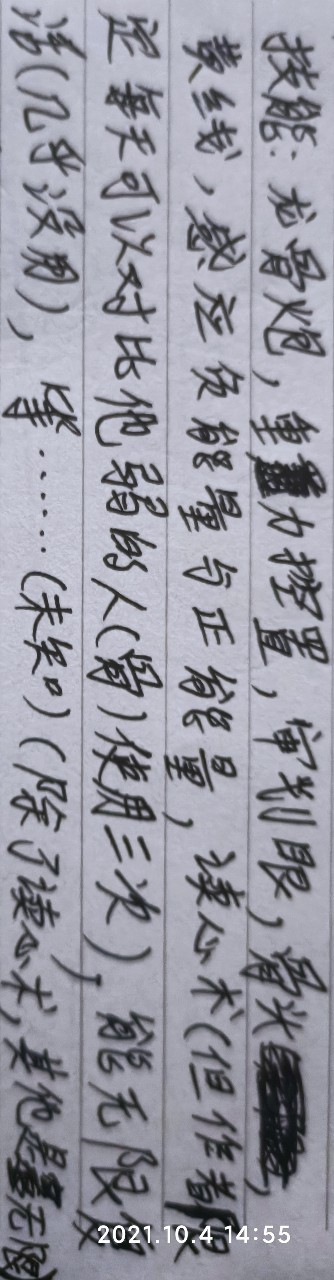 技能：龙骨炮，重力控置，审判眼，骨光，
黄线，感应负能量与正能量，读心术（但作者限
定每天可以对比他弱的人（骨）使用三次），能无限复
活（几乎没用），等……（未知）（除了读心术，其他是无限
2021.10.4 14:55